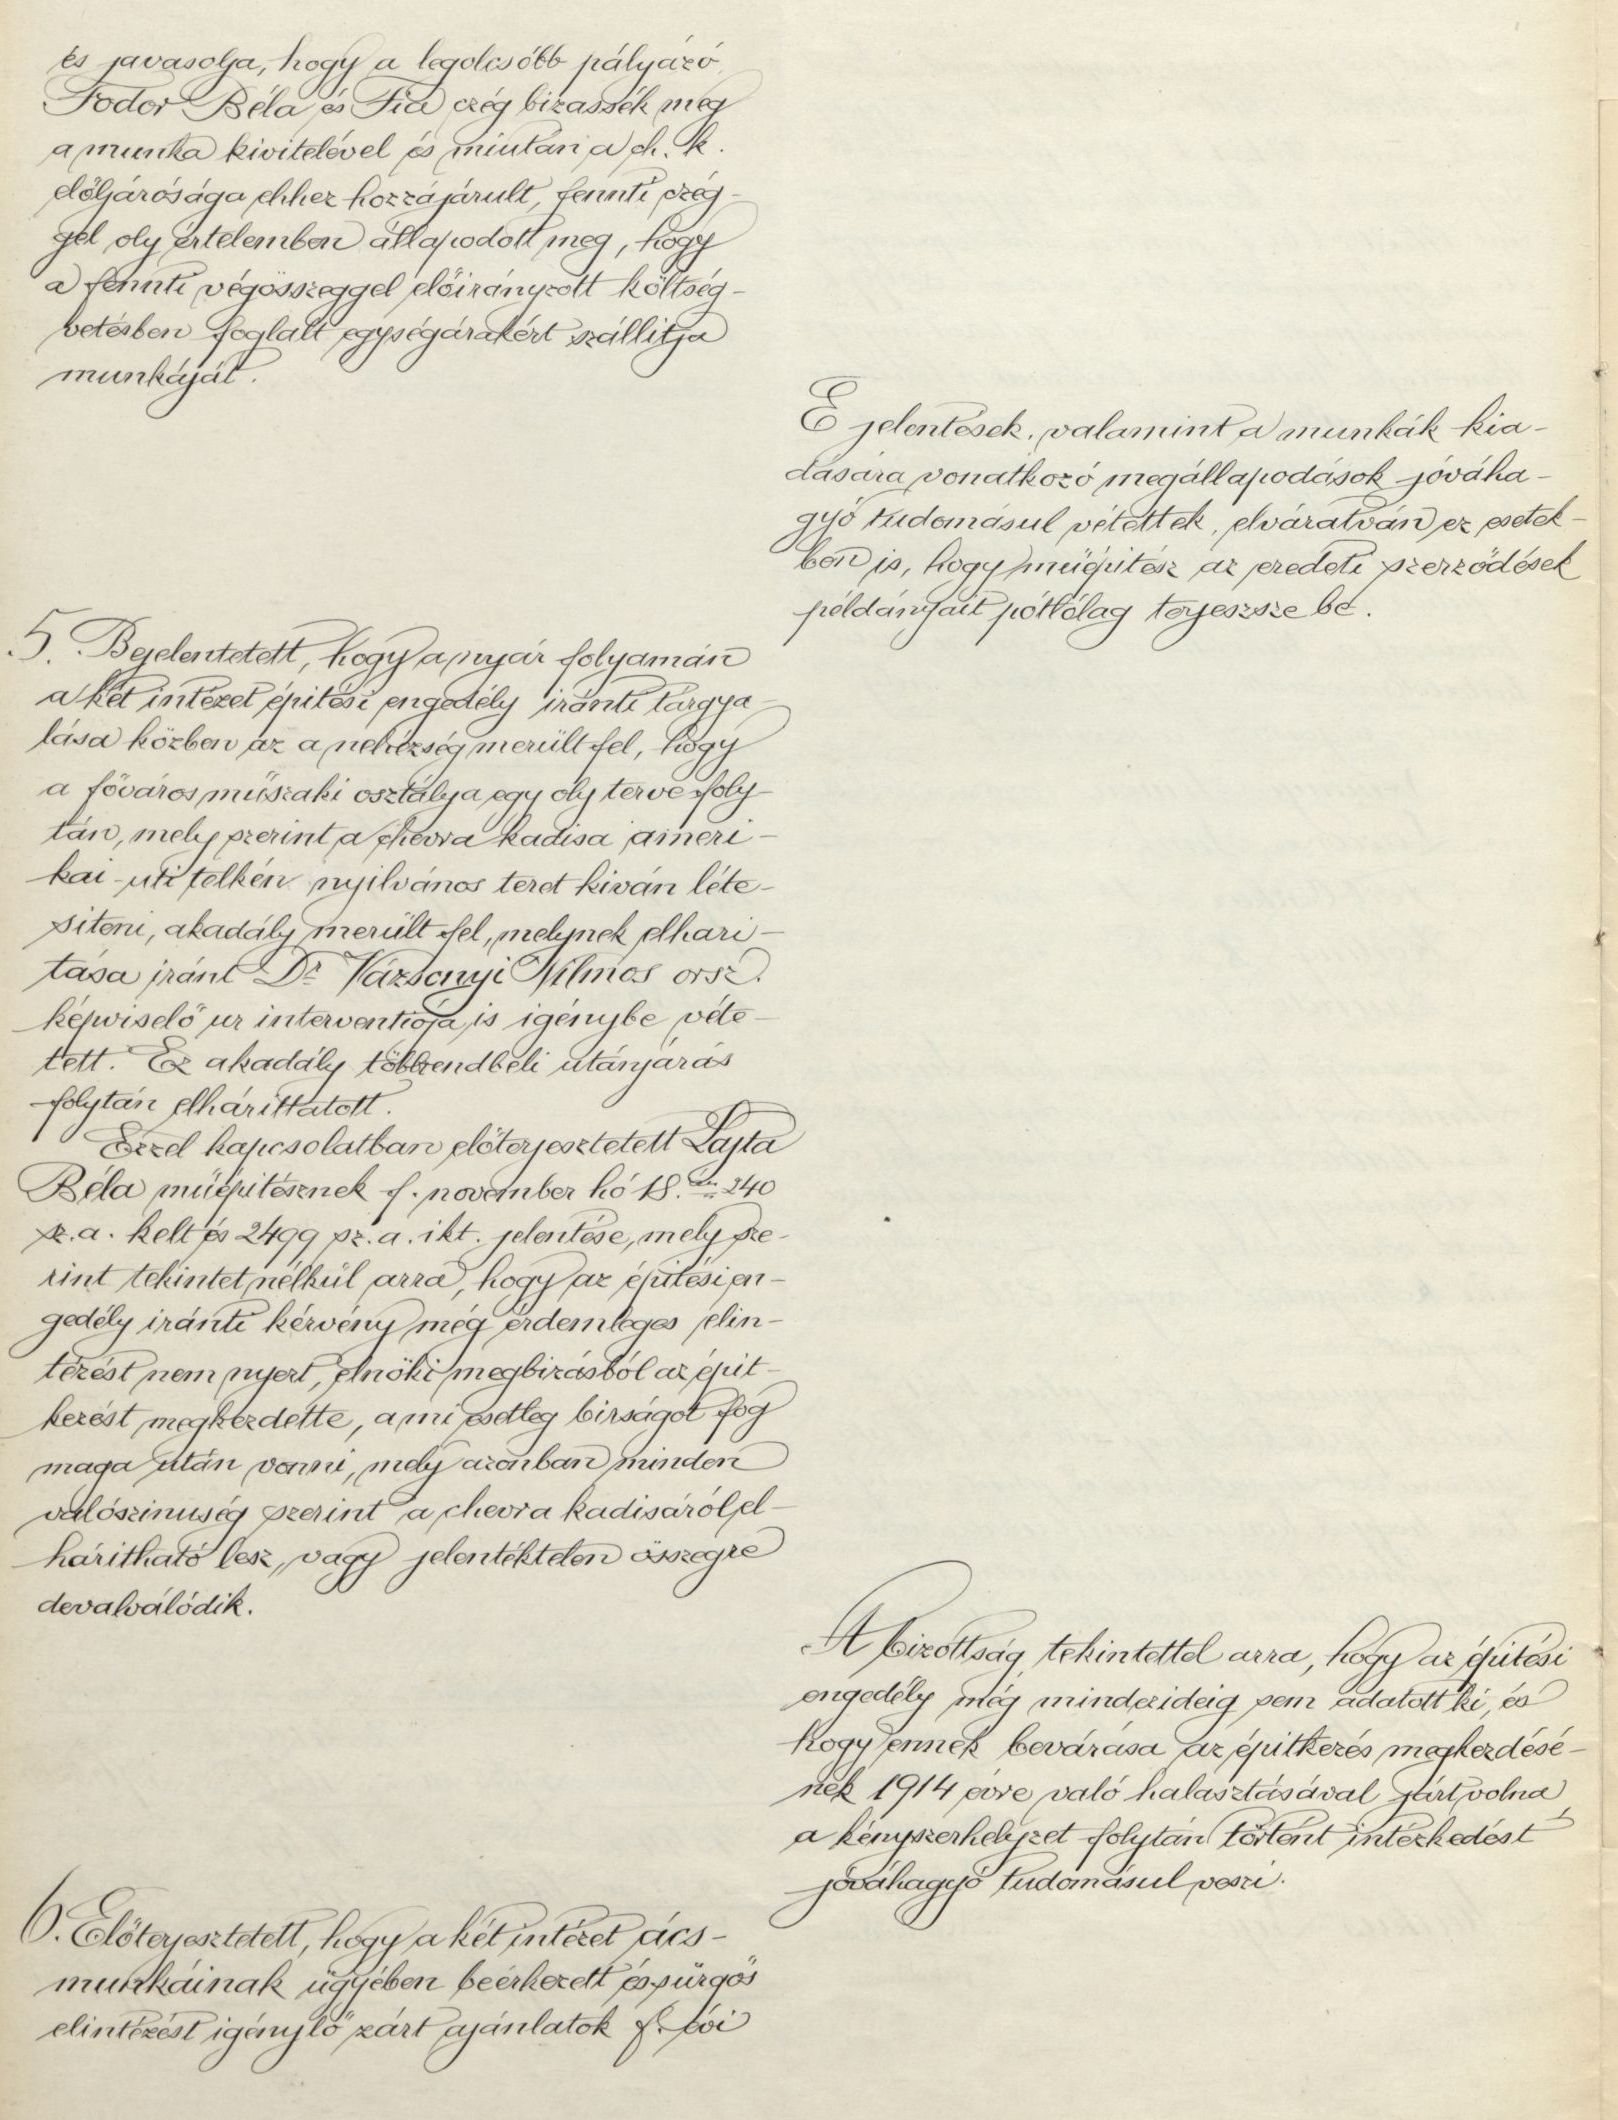 és javasolja, hogy a legolcsóbb pályázó,
Fodor Béla és Fia czég bizassék meg
a munka kivitelével és miután a ch. k.
elöljárósága ehhez hozzájárult, fennti czég-
gel oly értelemben állapodott meg, hogy
a fennti végösszeggel előirányzott költség-
vetésben foglalt egységárakért szállitja
munkáját.
E jelentések, valamint a munkák kia-
dására vonatkozó megállapodások jóváha-
gyó tudomásul vétettek, elváratván ez esetek-
ben is, hogy műépitész az eredeti szerződések
példányait pótlólag terjeszsze be.
5. Bejelentetett, hogy a nyár folyamán
a két intézet épitési engedély iránti tárgya-
lása közben az a nehézség merült fel, hogy
a főváros műszaki osztálya egy oly terve foly-
tán, mely szerint a chevra kadisa ameri-
kai-uti telkén nyilvános teret kiván léte-
siteni, akadály merült fel, melynek elhari-
tása iránt Dr Vázsonyi Vilmos orsz.
képviselő ur interventiója is igénybe véte-
tett. Ez akadály többrendbeli utánjárás
folytán elháríttatott.
Ezzel kapcsolatban előterjesztetett Lajta
Béla műépitésznek f. november hó 18.án 240
sz.a. kelt és 2499 sz.a. ikt. jelentése, mely sze-
rint tekintet nélkül arra, hogy az épitési en-
gedély iránti kérvény még érdemleges elin-
tézést nem nyert, elnöki megbizásból az épit-
kezést megkezdette, a mi esetleg birságot fog
maga után vonni, mely azonban minden
valószinuség szerint a chevra kadisáról el-
háritható lesz, vagy jelentéktelen összegre
devalválódik.
A bizottság tekintettel arra, hogy az épitési
engedély még mindezideig sem adatott ki, és
hogy ennek bevárása az épitkezés megkezdésé-
nek 1914 évre való halasztásával járt volna,
a kényszerhelyzet folytán történt intézkedést
jóváhagyó tudomásul veszi.
6. Előterjesztetett, hogy a két intézet ács-
munkáinak ügyében beérkezett és sürgős
elintézést igénylő zárt ajánlatok f. évi